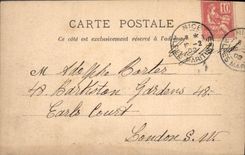 CARTE POSTALE
Ce côté est exclusivement réservé à l'adresse
10
NICE
M Adolphe Porter
48 Barkston Gardens 48
Earls Court
London S.W.